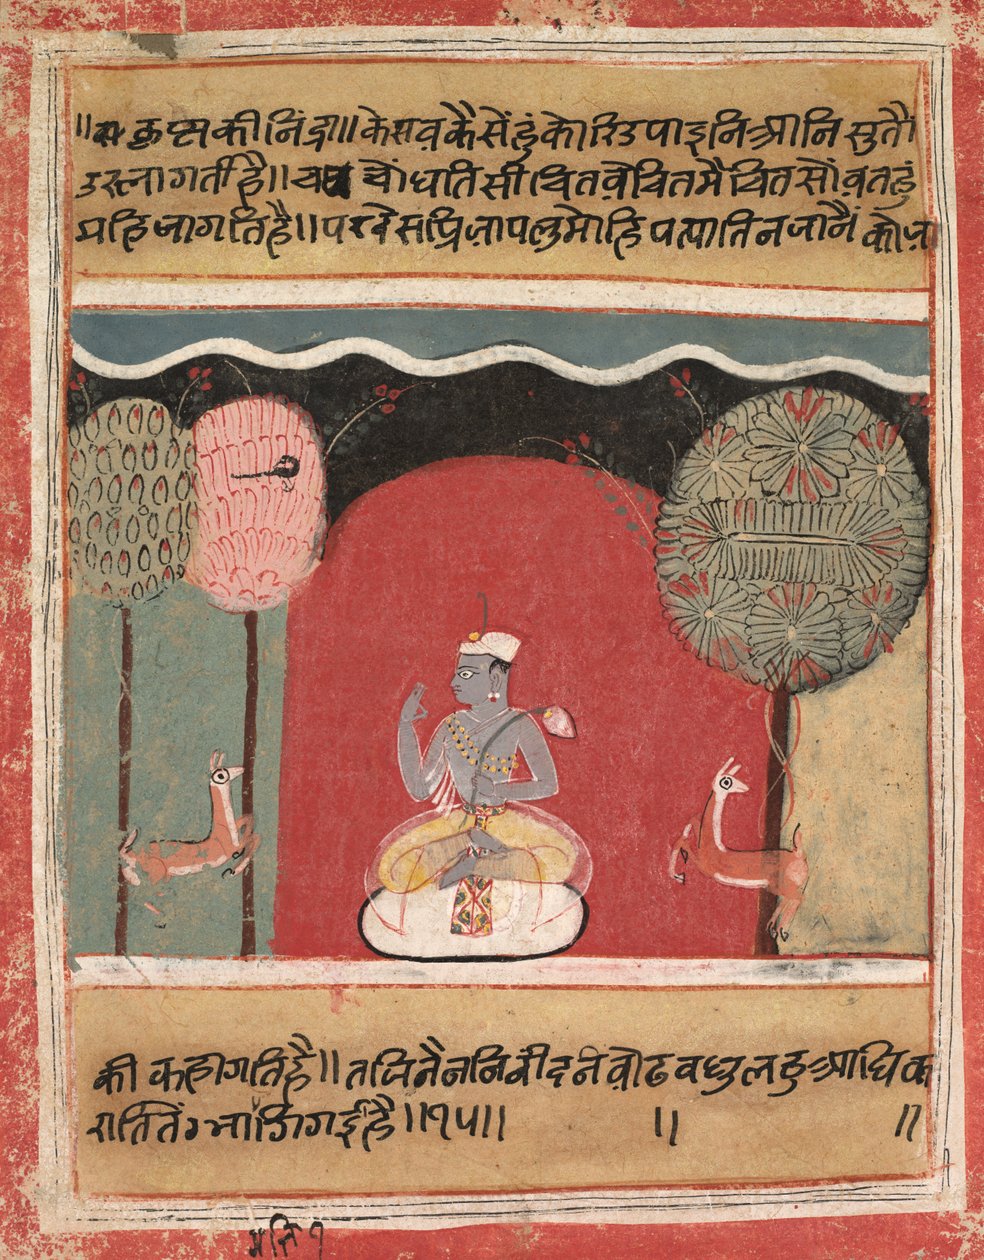 ॥ कृष्न की निंद्रा॥ केसव कैसेंहुं कोरि उपाइनि आनि सु तौ
उर लागति है॥ चौंधति सी चितवे चित मै चित सोंवत हुं
महि जागति है॥ परदेस प्रिजा पलु मोहि पत्याति न जानैं को जा
की कहा गति है॥ तजि नैननि बीद नवोढ वधु लहु आधिक
राति तिं भागि गई है॥१५॥ ॥ ॥